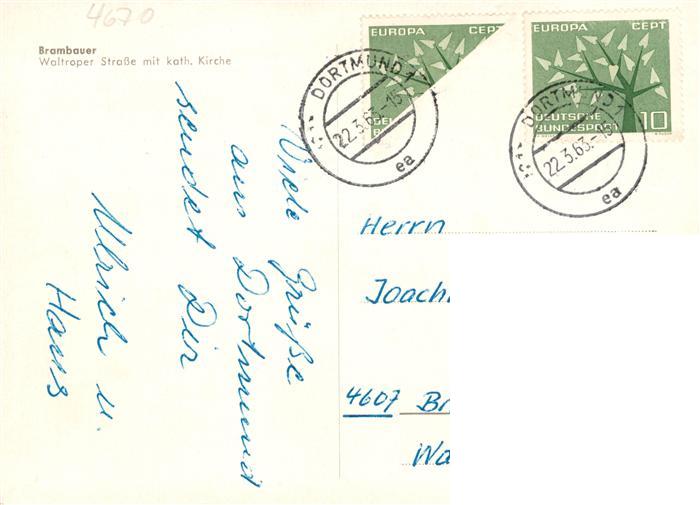 4670
Brambauer
Waltroper Straße mit kath. Kirche
EUROPA CEPT
EUROPA CEPT
DEUTSCHE
BUNDESPOST
10
DORTMUND 1
22.3.63.-15
ea
DORTMUND 1
22.3.63.-15
ea
Viele Grüße
aus Dortmund
sendet Dir
Ulrich u.
Hans
Herrn
Joach
4607 Br
Wa